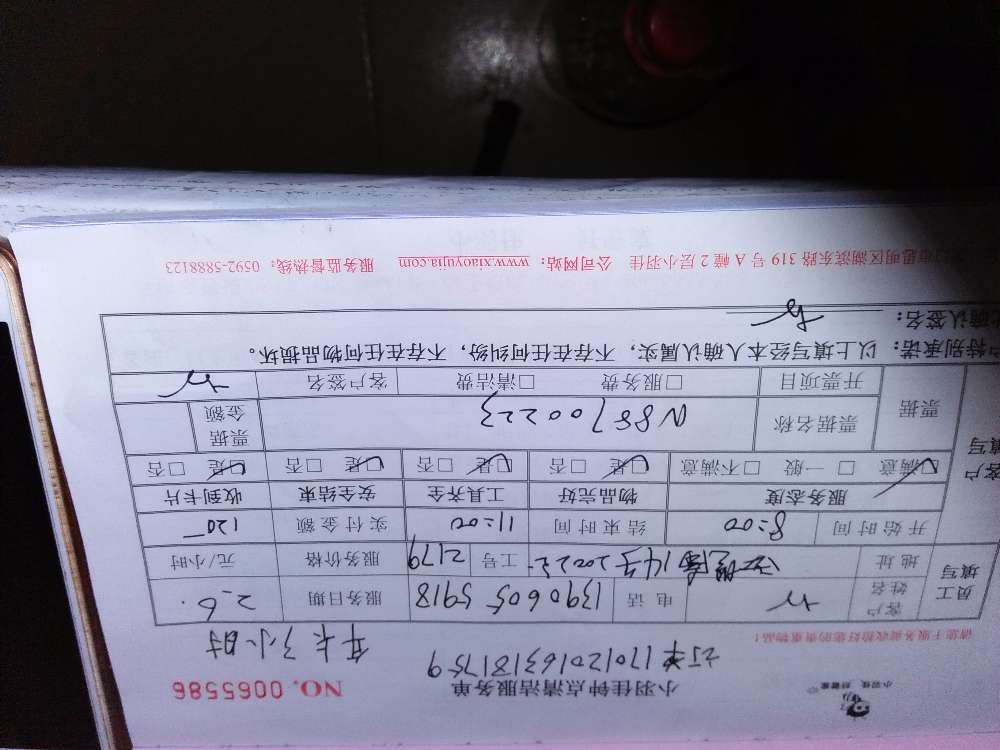 小羽佳 好管家
小羽佳钟点清洁服务单
NO. 0065586
订单17012016318175 9
年卡3小时
请您于服务前收拾好您的贵重物品!
员工填写
客户姓名
电话 13906055918
服务日期 2.6.
地址 14号2002
工号 2179
服务价格 元/小时
开始时间 8:00
结束时间 11:00
实付金额 120
客户填写
服务态度 物品完好 工具齐全 安全结束 收到卡片
☑满意 □一般 □不满意 ☑是 □否 ☑是 □否 ☑是 □否 ☑是 □否
票据
票据名称 N88700223
票据金额
开票项目 □服务费 □清洁费 客户签名
户特别承诺:以上填写经本人确认属实,不存在任何纠纷,不存在任何物品损坏。
确认签名:
市思明区湖滨东路 319 号 A 幢 2 层小羽佳 公司网站:www.xiaoyujia.com 服务监督热线:0592-5888123